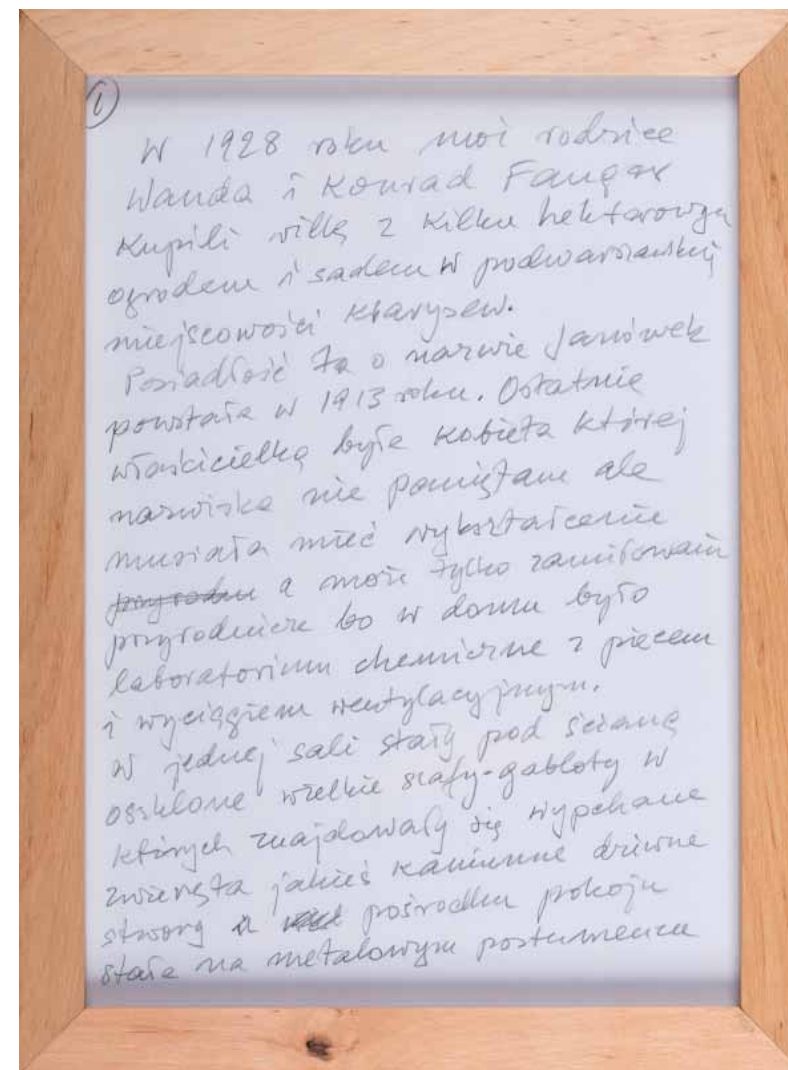 1
W 1928 roku moi rodzice
Wanda i Konrad Fangor
Kupili willę z kilku hektarowym
ogrodem i sadem w podwarszawskiej
miejscowości Klarysew.
Posiadłość ta o nazwie Janówek
powstała w 1913 roku. Ostatnią
właścicielką była kobieta której
nazwiska nie pamiętam ale
musiała mieć wykształcenie
a może tylko zamiłowania
przyrodnicze bo w domu było
laboratorium chemiczne z piecem
i wyciągiem wentylacyjnym.
w jednej sali stały pod ścianą
oszklone wielkie szafy-gabloty w
których znajdowały się wypchane
zwierzęta jakieś kamienne dziwne
stwory a pośrodku pokoju
stała na metalowym postumencie